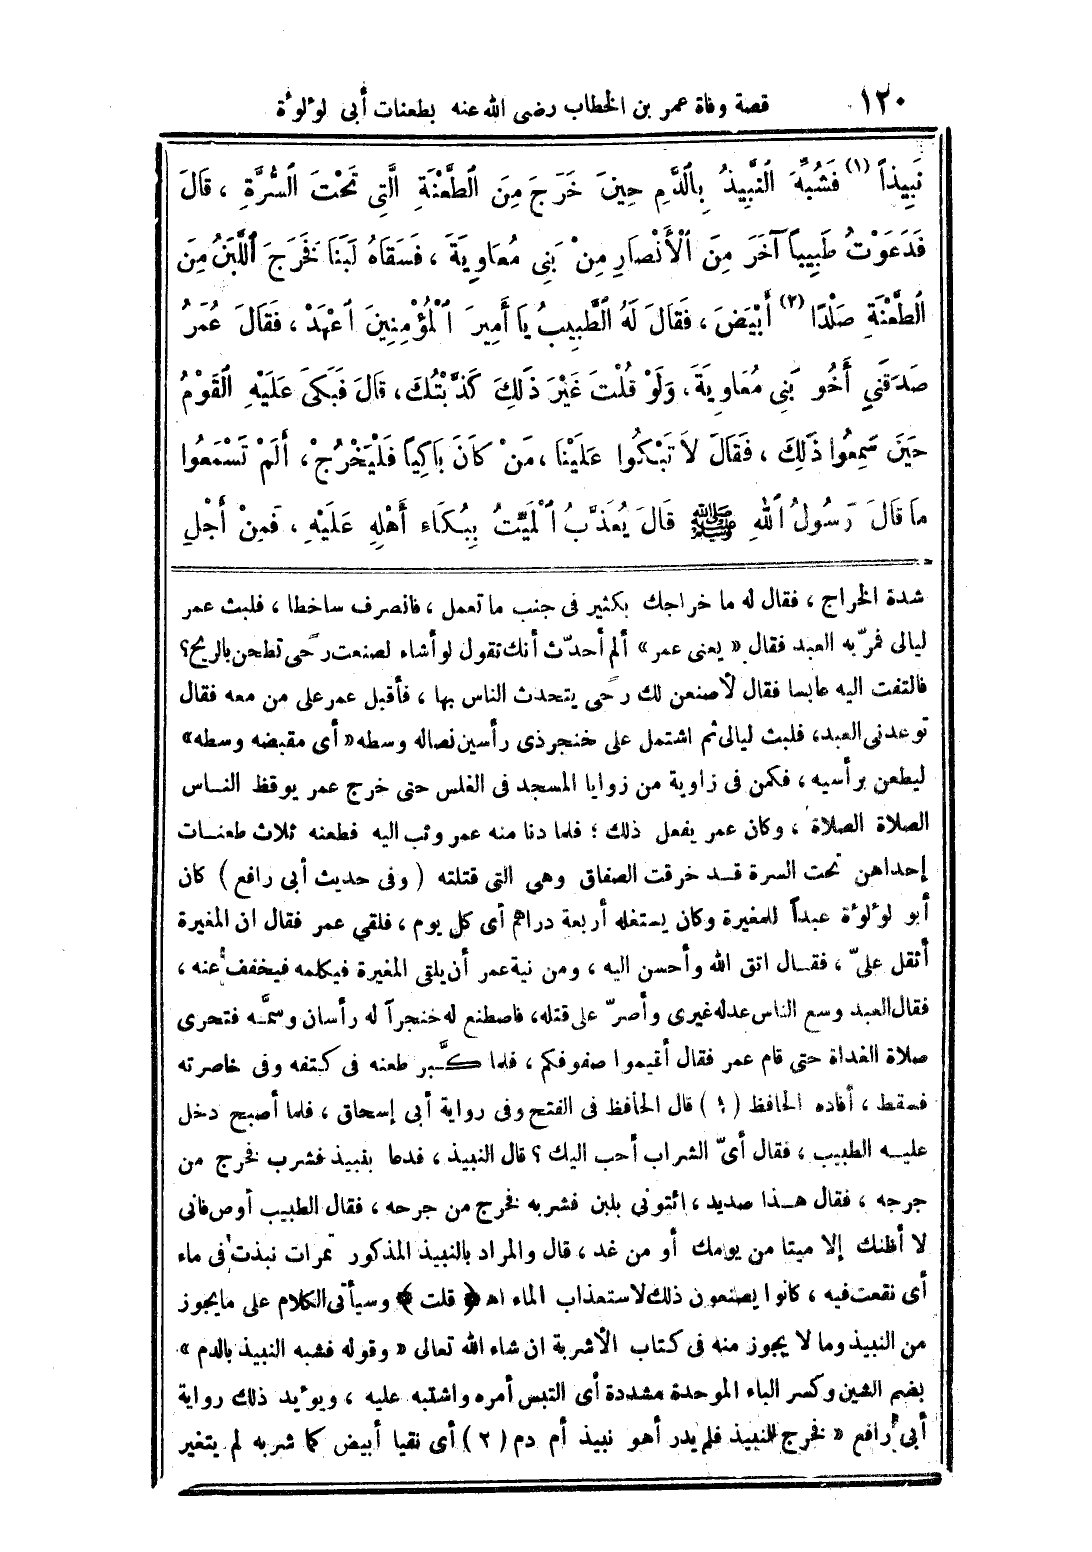 ١٢٠ قصة وفاة عمر بن الخطاب رضى الله عنه بطعنات أبى لؤلؤة
نَبِيذاً (١) فَشُبِّهَ النَّبِيذُ بِالدَّمِ حِينَ خَرَجَ مِنَ الطَّعْنَةِ الَّتِى تَحْتَ السُّرَّةِ ، قَالَ
فَدَعَوْتُ طَبِيباً آخَرَ مِنَ الْأَنْصَارِ مِنْ بَنِى مُعَاوِيَةَ ، فَسَقَاهُ لَبَنَا فَخَرَجَ اللَّبَنُ مِنَ
الطَّعْنَةِ صَلْدًا (٢) أَبْيَضَ ، فَقَالَ لَهُ الطَّبِيبُ يَا أَمِيرَ الْمُؤْمِنِينَ اعْهَدْ ، فَقَالَ عُمَرُ
صَدَقَنِي أَخُو بَنِى مُعَاوِيَةَ، وَلَوْ قُلْتَ غَيْرَ ذَلِكَ كَذَّبْتُكَ، قَالَ فَبَكَى عَلَيْهِ الْقَوْمُ
حِينَ سَمِعُوا ذَلِكَ ، فَقَالَ لاَ تَبْكُوا عَلَيْنَا ، مَنْ كَانَ بَاكِياً فَلْيَخْرُجْ ، أَلَمْ تَسْمَعُوا
مَا قَالَ رَسُولُ اللهِ ﷺ قَالَ يُعَذَّبُ الْمَيِّتُ بِبُكَاءِ أَهْلِهِ عَلَيْهِ ، فَمِنْ أَجْلِ
شدة الخراج ، فقال له ما خراجك بكثير فى جنب ما تعمل ، فانصرف ساخطا ، فلبث عمر
ليالى فمرّ به العبد فقال « يعنى عمر » ألم أحدّث أنك تقول لو أشاء لصنعت رحًى تطحن بالريح؟
فالتفت اليه عابسا فقال لأصنعن لك رحًى يتحدث الناس بها ، فأقبل عمر على من معه فقال
توعدنى العبد، فلبث ليالى ثم اشتمل على خنجر ذى رأسين نصاله وسطه « أى مقبضه وسطه»
ليطعن برأسيه ، فكمن فى زاوية من زوايا المسجد فى الغلس حتى خرج عمر يوقظ النـاس
الصلاة الصلاة ، وكان عمر يفعل ذلك ؛ فلما دنا منه عمر وثب اليه فطعنه ثلاث طعنـات
إحداهن تحت السرة قـد خرقت الصفاق وهي التى قتلته ( وفى حديث أبى رافع ) كان
أبو لؤلؤة عبداً للمغيرة وكان يستغله أربعة دراهم أى كل يوم ، فلقي عمر فقال ان المغيرة
أثقل علىّ ، فقـال اتق الله وأحسن اليه ، ومن نية عمر أن يلقى المغيرة فيكلمه فيخفف عنه ،
فقال العبد وسع الناس عدله غيرى وأصرّ على قتله، فاصطنع له خنجرآ له رأسان وسمَّه فتحرى
صلاة الغداة حتى قام عمر فقال أقيموا صفوفكم ، فلما كبَّر طعنه فى كتفه وفى خاصرته
فسقط ، أفاده الحافظ (١) قال الحافظ فى الفتح وفى رواية أبى إسحاق ، فلما أصبح دخل
عليـه الطبيب ، فقال أىّ الشراب أحب اليك ؟ قال النبيذ ، فدعا بنبيذ فشرب فخرج من
جرحه ، فقال هـذا صديد ، ائتونى بلبن فشربه فخرج من جرحه ، فقال الطبيب أوص فانى
لا أظنك إلا ميتا من يومك أو من غد ، قال والمراد بالنبيذ المذكور تمرات نبذت فى ماء
أى نقعت فيه ، كانوا يصنعون ذلك لاستعذاب الماء اه ﴿ قلت ﴾ وسيأتى الكلام على ما يجوز
من النبيذ وما لا يجوز منه فى كتاب الأشربة ان شاء الله تعالى « وقوله فشبه النبيذ بالدم »
بضم الشين وكسر الباء الموحدة مشددة أى التبس أمره واشتبه عليه ، ويؤيد ذلك رواية
أبى رافع « فخرج النبيذ فلم يدر أهو نبيذ أم دم (٢) أى نقيا أبيض كما شربه لم يتغير